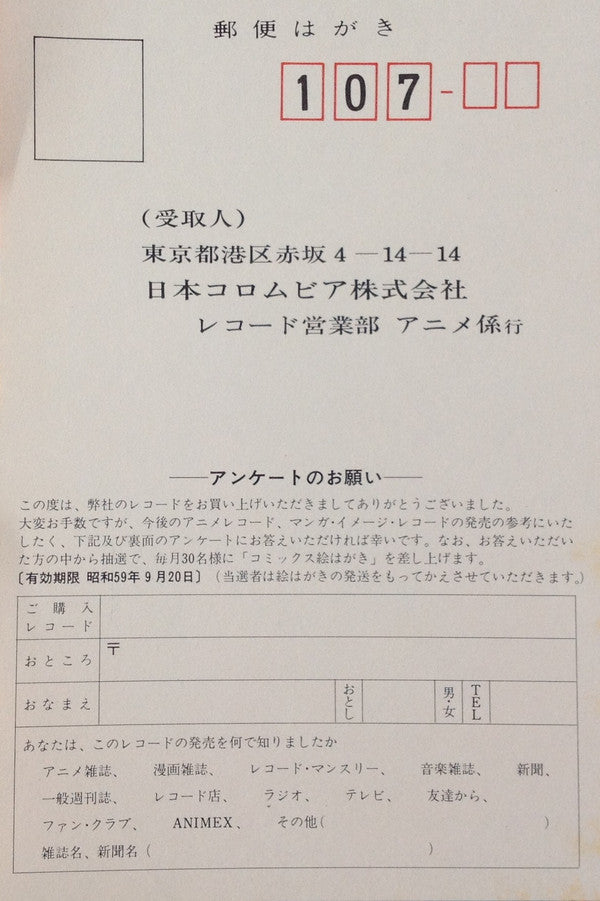 郵便はがき
107-
(受取人)
東京都港区赤坂4―14―14
日本コロムビア株式会社
レコード営業部 アニメ係行
――アンケートのお願い――
この度は、弊社のレコードをお買い上げいただきましてありがとうございました。
大変お手数ですが、今後のアニメレコード、マンガ・イメージ・レコードの発売の参考にいた
したく、下記及び裏面のアンケートにお答えいただければ幸いです。なお、お答えいただい
た方の中から抽選で、毎月30名様に「コミックス絵はがき」を差し上げます。
〔有効期限 昭和59年9月20日〕(当選者は絵はがきの発送をもってかえさせていただきます。)
ご購入
レコード
おところ 〒
おなまえ おとし 男・女 TEL
あなたは、このレコードの発売を何で知りましたか
アニメ雑誌、 漫画雑誌、 レコード・マンスリー、 音楽雑誌、 新聞、
一般週刊誌、 レコード店、 ラジオ、 テレビ、 友達から、
ファン・クラブ、 ANIMEX、 その他( )
雑誌名、新聞名( )